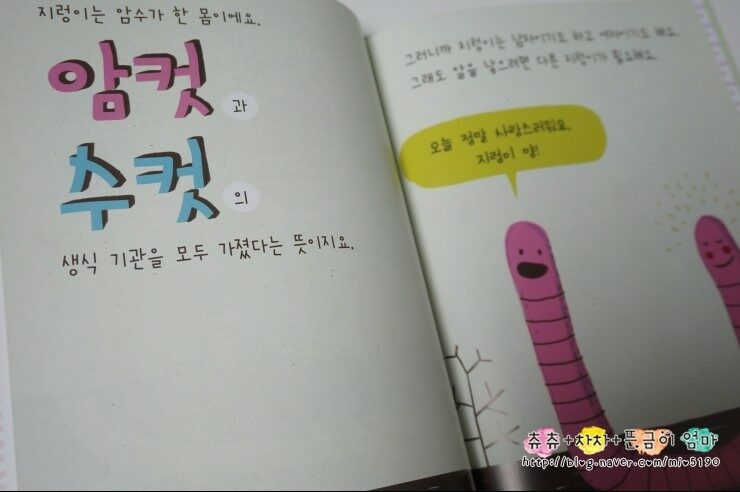 지렁이는 암수가 한 몸이에요.
암컷과
수컷의
생식 기관을 모두 가졌다는 뜻이지요.
그러니까 지렁이는 남자이기도 하고 여자이기도 해요.
그래도 알을 낳으려면 다른 지렁이가 필요해요.
오늘 정말 사랑스러워요,
지렁이 양!
츄츄+차차+픈금이 엄마
http://blog.naver.com/mio5190